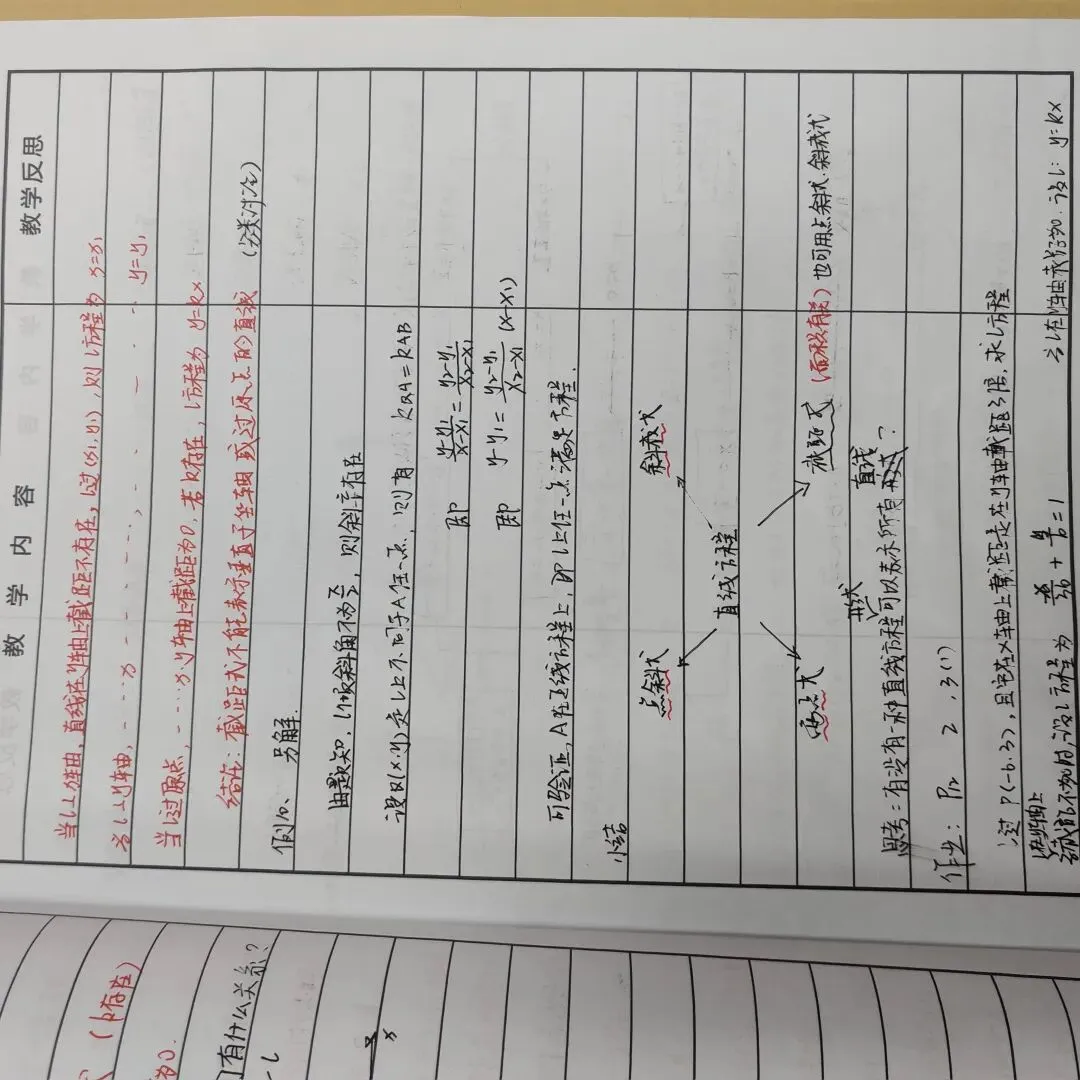 教 学 内 容 教学反思
当l⊥x轴,直线在y轴上截距不存在,l过(x₁,y₁),则l方程为 x=x₁
当l⊥y轴,---x-------,- — · · y=y₁
当l过原点,---x.y轴上截距为0,若k存在,l方程为 y=kx
结论:截距式不能表示垂直于坐标轴或过原点的直线 (分类讨论)
例10、 另解.
由题知,l倾斜角不为π/2,则斜率存在
设Q(x,y)是l上不同于A任一点,则有 kQA=kAB
即 (y-y₁)/(x-x₁)=(y₂-y₁)/(x₂-x₁)
即 y-y₁=(y₂-y₁)/(x₂-x₁)(x-x₁)
可验证,A在直线方程上,即l上任一点满足方程.
小结
点斜式 斜截式
直线方程
两点式 截距式 (面积有关) 也可用点斜式.斜截式
思考:有没有一种直线方程形式可以表示所有直线?
作业: P₇₂ 2,3(1)
过P(-6,3),且它在x轴上截距是在y轴截距3倍,求l方程
当l在y轴截距不为0时,设l方程为 x/3b + y/b =1 当l在y轴截距为0.设l:y=kx
(k存在)
为0.
有什么关系?
l
x